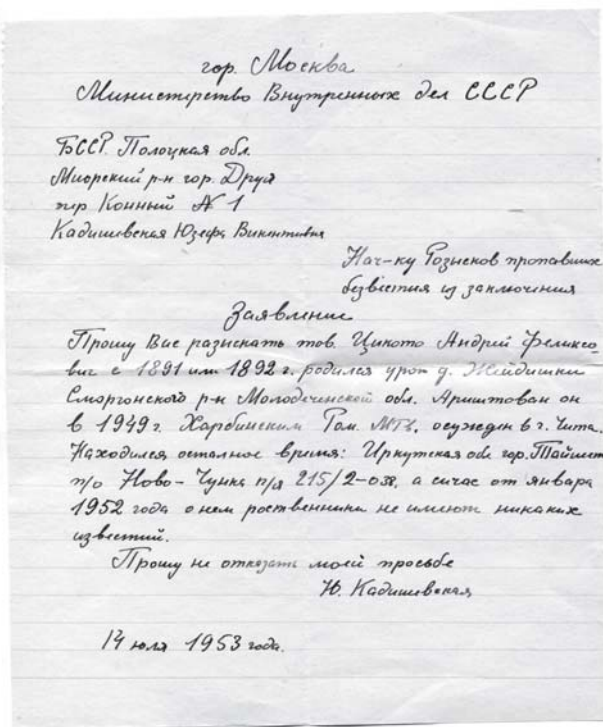 гор. Москва
Министерство Внутренных дел СССР
БССР. Полоцкая обл.
Миорский р-н гор. Друя
пер Конный № 1
Кадишевская Юзефа Викентивна
Нач-ку Розысков пропавших
безвестия из заключения
Заявление
Прошу Вас разыскать тов. Цикото Андрей Феликсо-
вич с 1891 или 1892 г. родился урож д. Жейдишки
Сморгонского р-н Молодеченской обл. Ариштован он
в 1949 г. Харбинским осужден в г. Чита.
Находился осталное время: Иркутская обл гор. Тайшет
п/о Ново-Чунка п/я 215/2-038, а сичас от января
1952 года о нем роственники не имеют никаких
известий.
Прошу не отказать моей просьбе
Ю. Кадишевская
14 июля 1953 года.